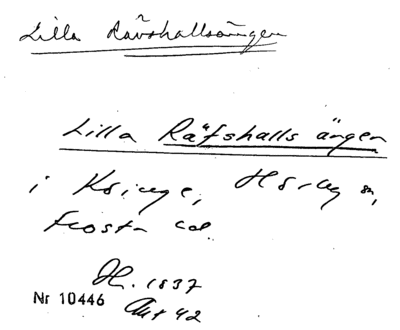 Lilla Rävshallsängen
Lilla Räfshalls ängen
i Ksinge, Hörby sn,
Frosta hd.
H. 1837
Akt 42
Nr 10446